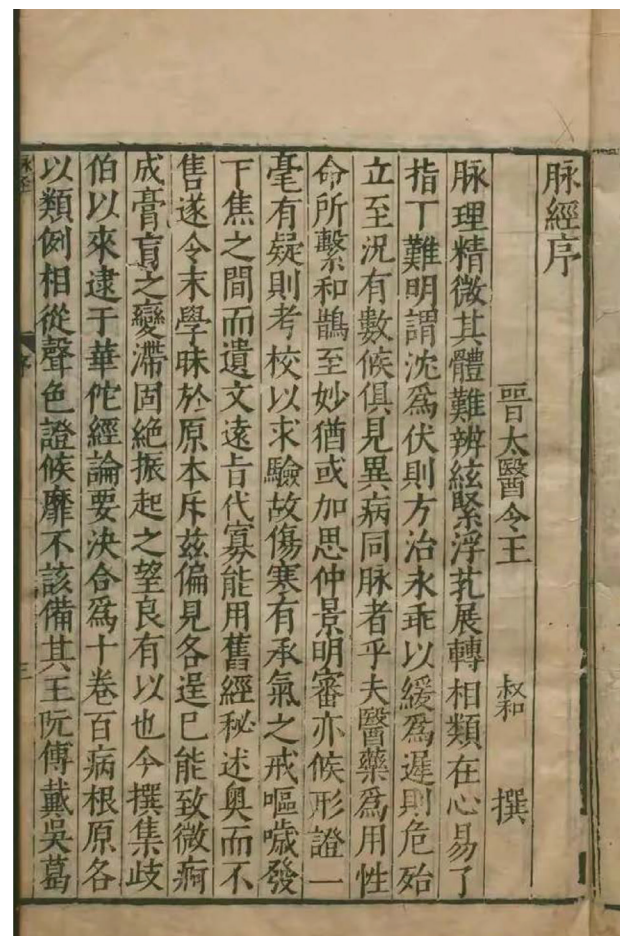 脉經序
晉太醫令王 叔和 撰
脉理精微其體難辨絃緊浮芤展轉相類在心易了
指下難明謂沈爲伏則方治永乖以緩爲遲則危殆
立至況有數候俱見異病同脉者乎夫醫藥爲用性
命所繫和鵲至妙猶或加思仲景明審亦候形證一
毫有疑則考校以求驗故傷寒有承氣之戒嘔噦發
下焦之間而遺文遠旨代寡能用舊經秘述奥而不
售遂令末學昧於原本斥兹偏見各逞己能致微痾
成膏肓之變滯固絶振起之望良有以也今撰集歧
伯以來逮于華佗經論要决合爲十卷百病根原各
以類例相從聲色證候靡不該備其王阮傅戴吳葛
脉經
序
三